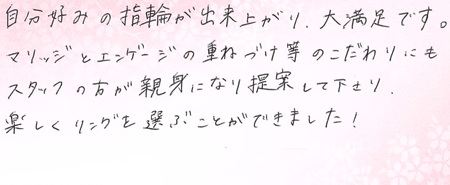 自分好みの指輪が出来上がり、大満足です。
マリッジとエンゲージの重ねづけ等のこだわりにも
スタッフの方が親身になり提案して下さり、
楽しくリングを選ぶことができました!